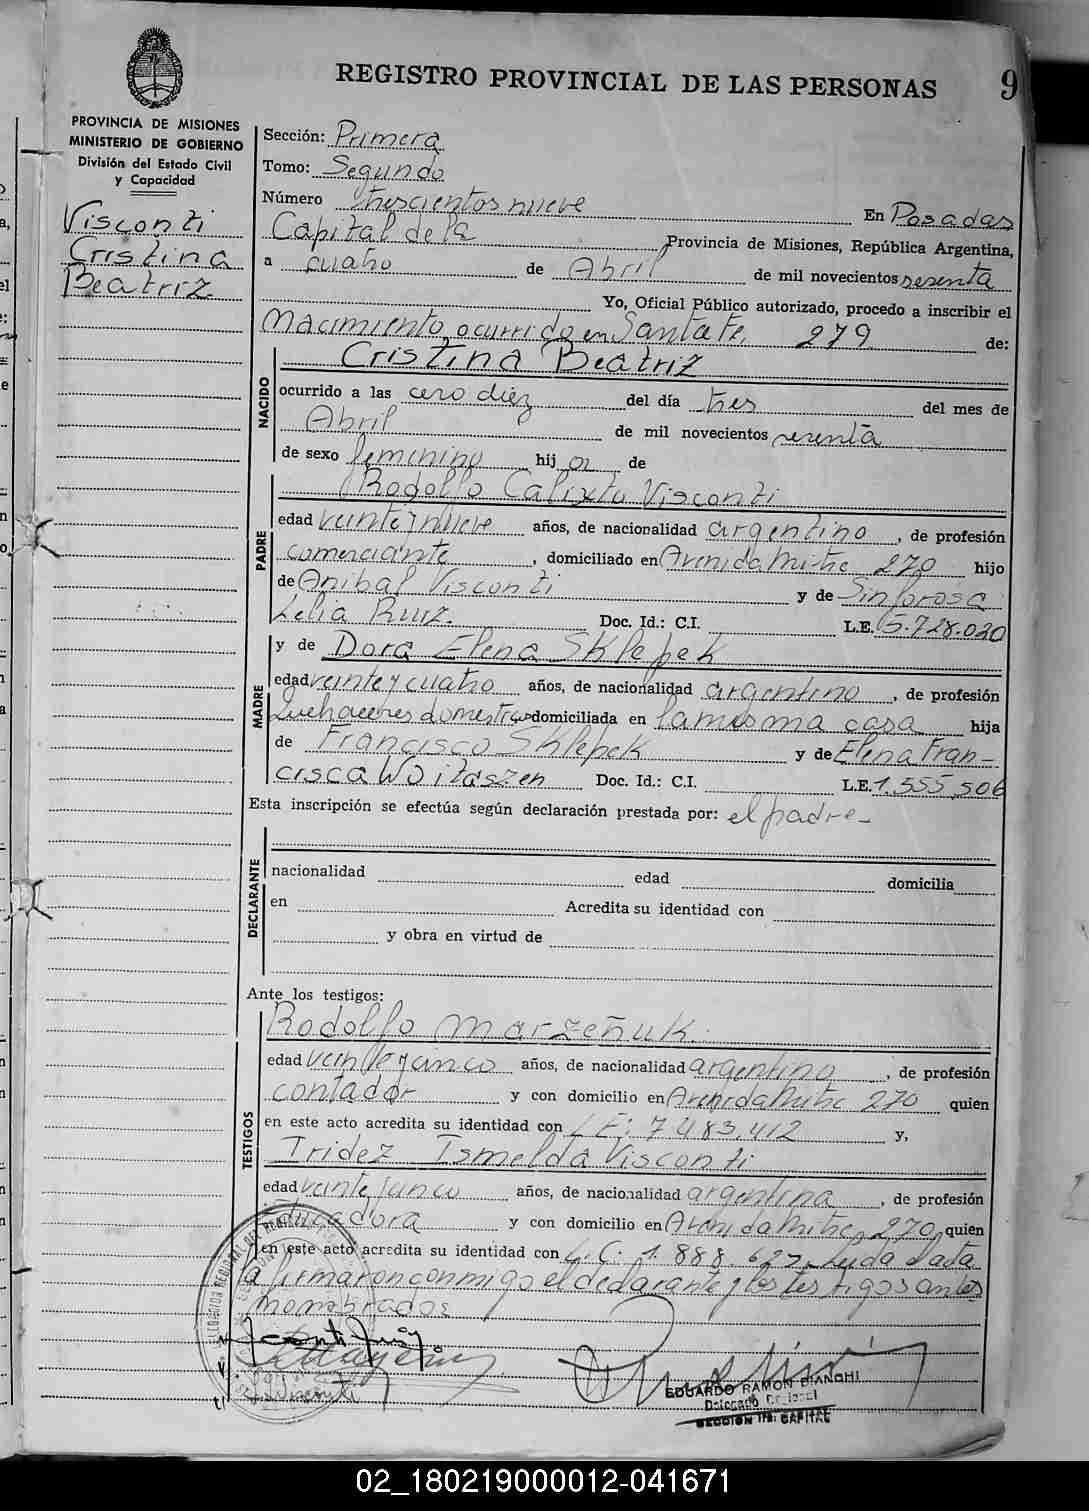 REGISTRO PROVINCIAL DE LAS PERSONAS 9
PROVINCIA DE MISIONES
MINISTERIO DE GOBIERNO
División del Estado Civil
y Capacidad
Visconti
Cristina
Beatriz
Sección: Primera
Tomo: Segundo
Número trescientos nueve En Posadas
Capital de la Provincia de Misiones, República Argentina,
a cuatro de Abril de mil novecientos sesenta
Yo, Oficial Público autorizado, procedo a inscribir el
Nacimiento ocurrido en Santa Fe, 279 de:
Cristina Beatriz
NACIDO
ocurrido a las cero diez del día tres del mes de
Abril de mil novecientos sesenta
de sexo femenino hija de
Rodolfo Calixto Visconti
PADRE
edad veinte y nueve años, de nacionalidad argentino, de profesión
comerciante, domiciliado en Avenida Mitre 270 hijo
de Anibal Visconti y de Sinforosa
Lelia Ruiz. Doc. Id.: C.I. L.E. 5.728.020
y de Dora Elena Sklepek
MADRE
edad veinte y cuatro años, de nacionalidad argentino, de profesión
Quehaceres domesticos domiciliada en la misma casa hija
de Francisco Sklepek y de Elena Fran-
cisca Doc. Id.: C.I. L.E. 1.555.506
Esta inscripción se efectúa según declaración prestada por: el padre-
DECLARANTE
nacionalidad edad domicilia
en Acredita su identidad con
y obra en virtud de
Ante los testigos:
TESTIGOS
Rodolfo Marzeñuk.
edad veinte y cinco años, de nacionalidad argentino, de profesión
contador y con domicilio en Avenida Mitre 270 quien
en este acto acredita su identidad con L E: 7.483.412 y,
Iridez Ismelda Visconti
edad veinte y cinco años, de nacionalidad argentina, de profesión
Educadora y con domicilio en Avenida Mitre 270, quien
en este acto acredita su identidad con L.C: 1.888.627. Leida el acta
la firmaron conmigo el declarante y los testigos antes
nombrados
EDUARDO RAMON BIANCHI
Delegado
SECCION 1ra. CAPITAL
02_180219000012-041671